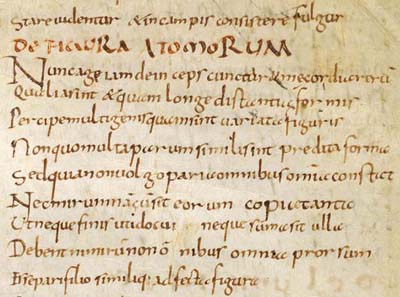 Stare uidentur & in campis consistere fulgur
DE FIGURA ATOMORUM
Nunc age iam dein ceps
Qualia sint & quam longe distantia formis
Percipe multigenis quam sint uariata figuris
Non quo multa parum simili sint predita forma
Sed quia non uolgo paria omnibus omnia constat
Nec mirum nā cū sit eorum copia tanta
Ut neque finis uti docui neque sūma sit ulla
Debent nimirū non omnibus omnia prorsum
Esse pari filo similiq; adfecta figura